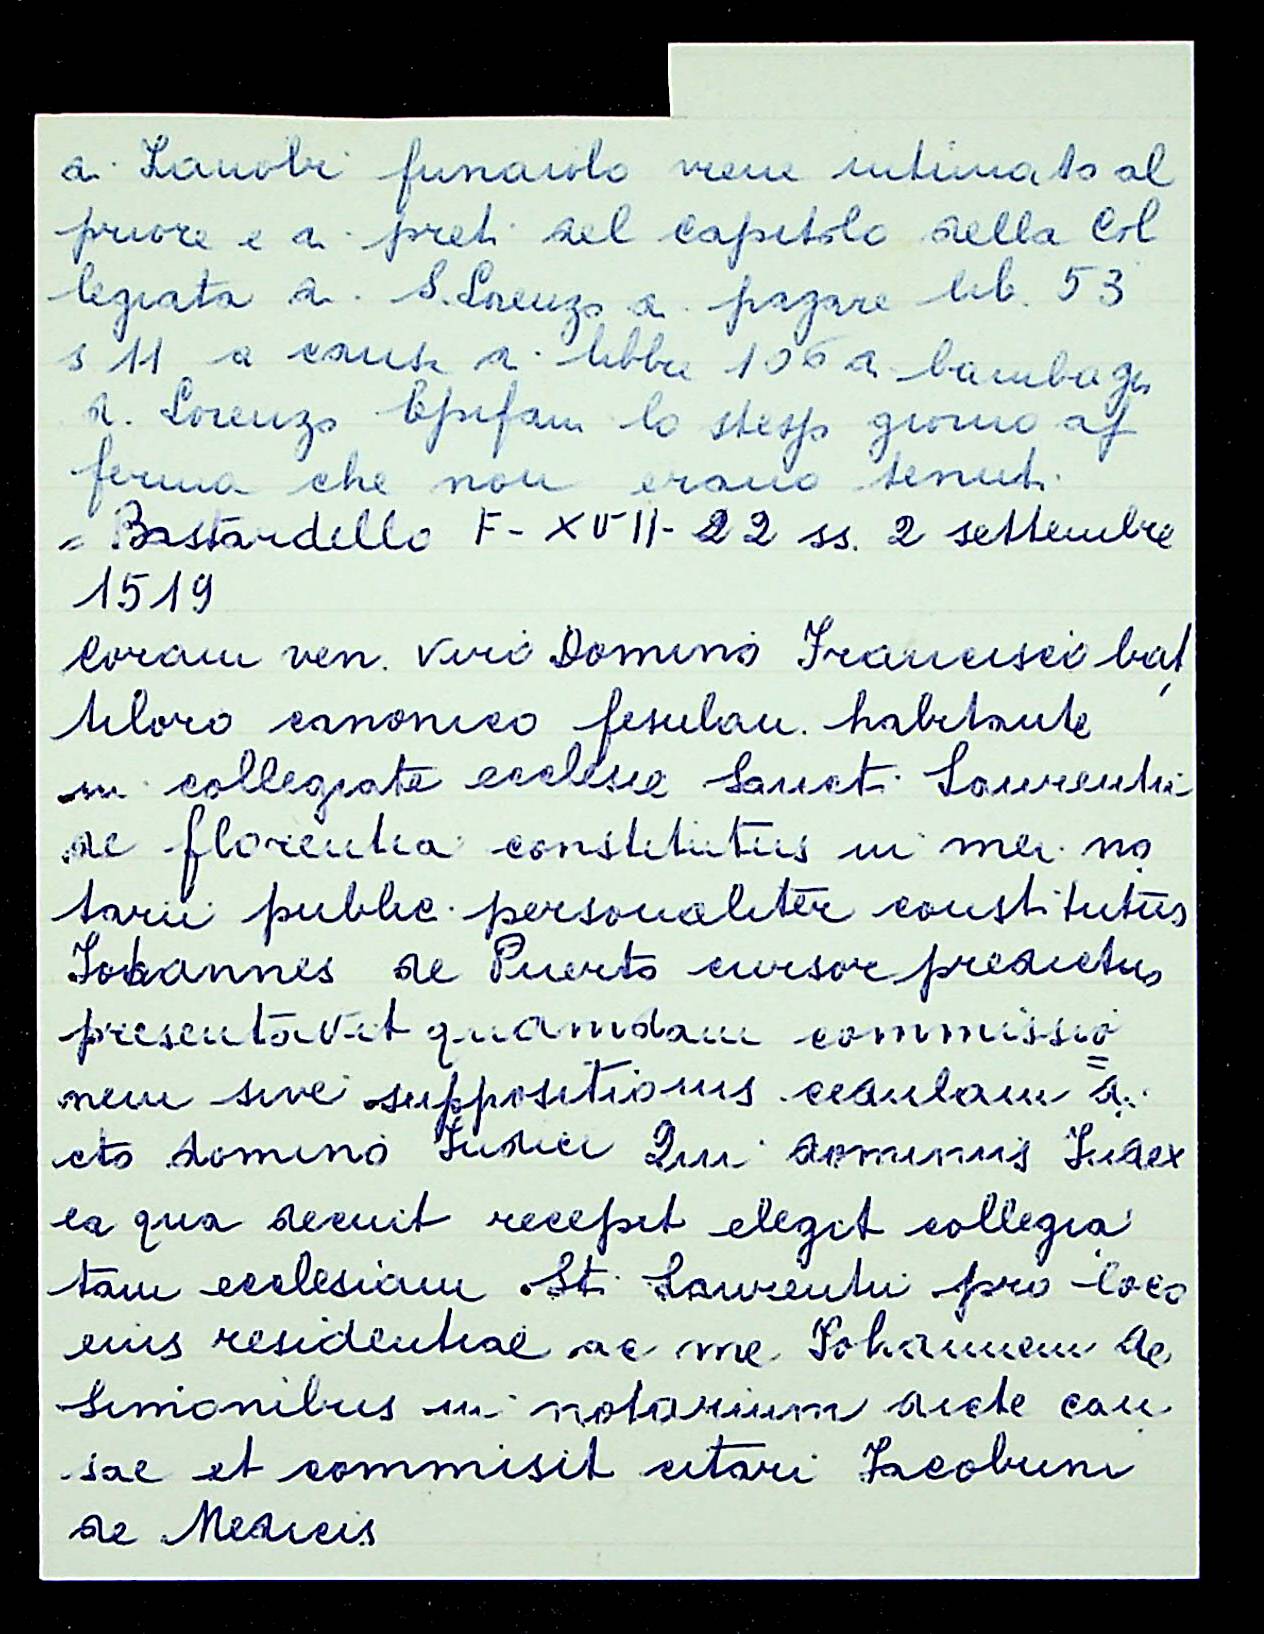 di Zanobi funaiolo viene intimato al
priore e ai preti del capitolo della Col
legiata di S. Lorenzo di pagare lib. 53
s 11 a causa di libbre 106 di bambagia
di Lorenzo Epifani lo stesso giorno af
ferma che non erano tenuti.
= Bastardello F - XVII - 22 ss. 2 settembre
1519
Coram ven. viro Domino Francisco bat
tiloro canonico fesulan. habitante
in collegiate ecclesie Sancti Laurentii
de florentia constitutus in mei no
tarii public. personaliter constitutus
Johannes de Puerto cursor predictus
presentavit quamdam commissio
nem sive suppositionis cedulam di
cto domino Judici Qui dominus Judex
ea qua decuit recepit elegit collegia
tam ecclesiam Sti Laurentii pro loco
eius residentiae ac me Johannem de
Simonibus in notarium dicte cau
sae et commisit citari Jacobum
de Medicis